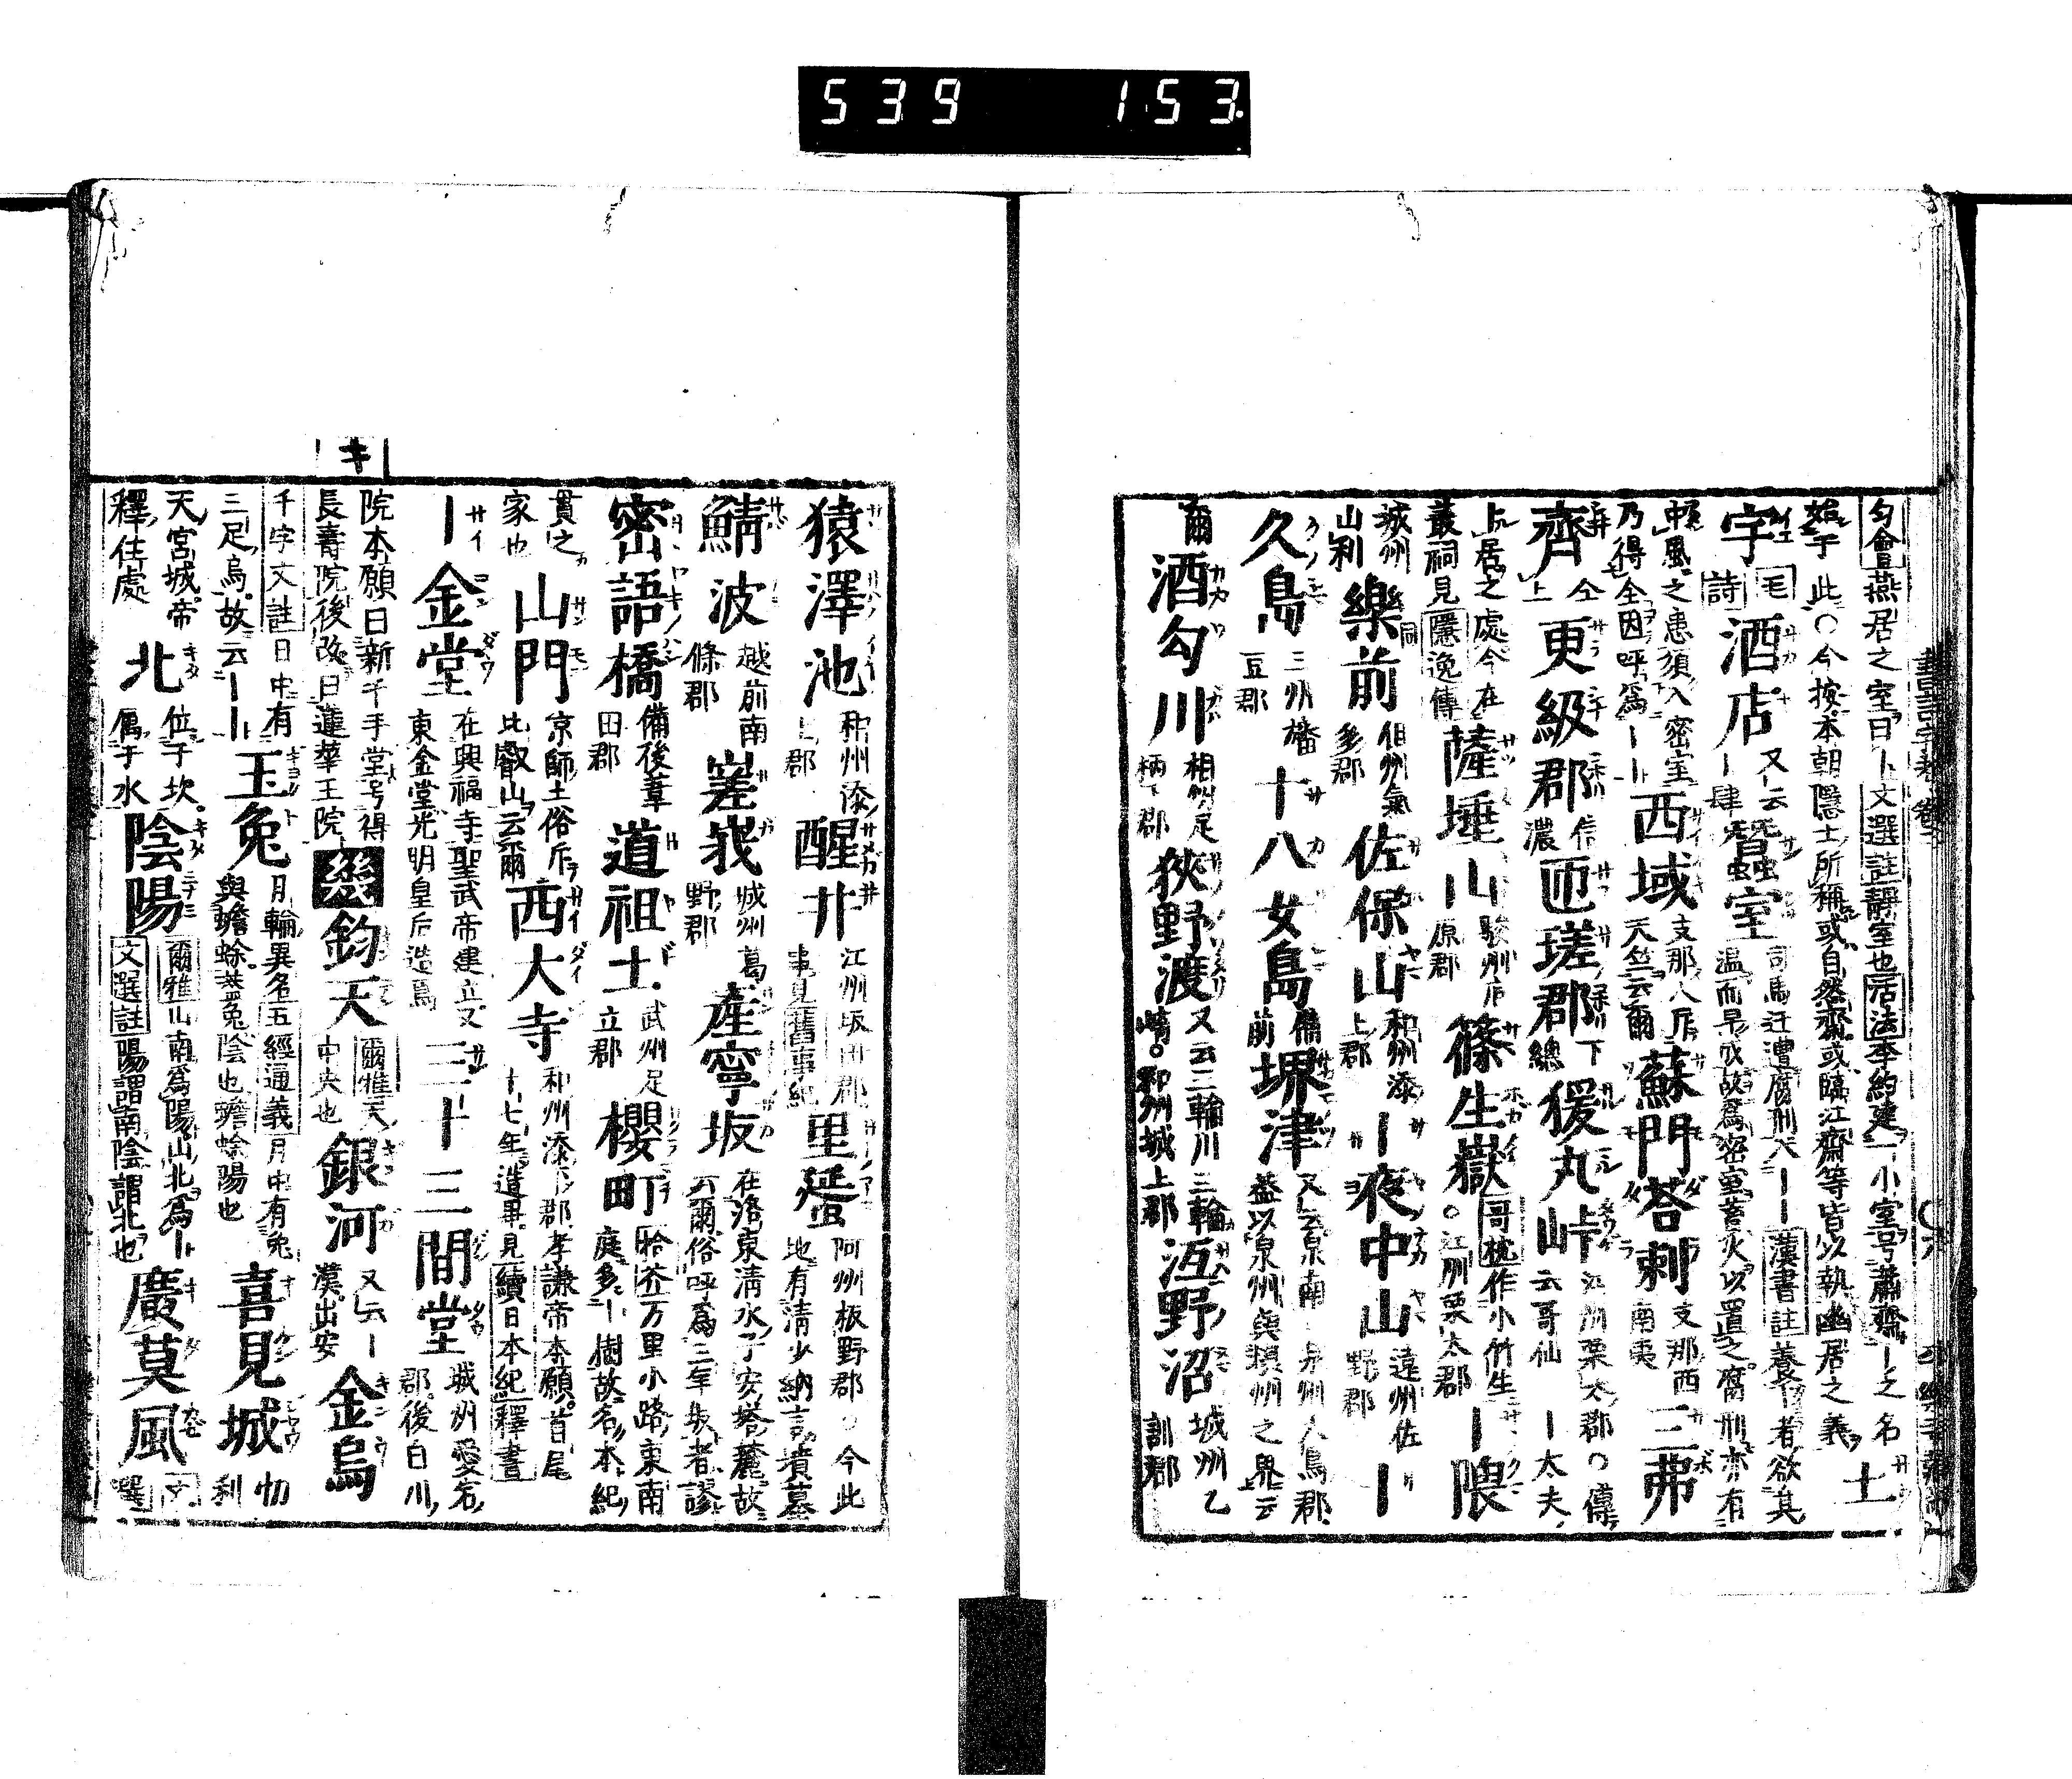 539 153
匀會燕居之室曰丨文選註靜室也活法李約建一小室号蕭齋丨之名
始于此〇今按本朝隱士所稱或自然齋或臨江齋等皆以執幽居之義 土
宇 毛詩 酒店 又丨云丨肆 蠶室 司馬迁遭腐刑入丨丨漢書註養丨者欲其温而早成故爲密室蓄火以置之腐刑亦有
中風之患須入密室乃得全因呼爲丨丨 西域 支那人斥天竺云爾 蘇門荅剌 支那西南夷 三弗
齊 仝上 更級郡 信濃 匝瑳郡 下總 猨丸峠 江州栗太郡〇傳云哥仙丨太夫
上居之處今在叢祠見隱逸傳 薩埵山 駿州庐原郡 篠生嶽 哥枕作小竹生〇江州栗太郡 丨隈
城州山利 樂前 但州氣多郡 佐保山 和州添上郡 丨夜中山 遠州佐野郡 丨
久島 三州幡豆郡 十八女島 備前 堺津 又云泉南丨泉州大鳥郡益以泉州與攝州之界云
爾 酒匂川 相州足柄郡 狹野渡 又云三輪川三輪崎〇和州城上郡 沍野沼 城州乙訓郡
猿澤池 和州添上郡 醒井 江州坂田郡事見舊事紀 里蜑 阿州板野郡〇今此地有清少納言墳墓
鯖波 越前南條郡 嵳峩 城州葛野郡 產寧坂 在洛東清水子安塔麓故云爾俗呼爲三年坂者謬
密語橋 備後葦田郡 道祖土 武州足立郡 櫻町 拾芥万里小路東南庭多丨樹故名本紀
貫之家也 山門 京師土俗斥比叡山云爾 西大寺 和州添下郡孝謙帝本願首尾十七年造畢見續日本紀釋書
丨金堂 在興福寺聖武帝建立又東金堂光明皇后造焉 三十三間堂 城州愛宕郡後白川
キ
院本願曰新千手堂号得長壽院後改曰蓮華王院 幾 鈞天 爾雅天中央也 銀河 又云丨漢出安 金烏
千字文註日中有三足烏故云丨丨 玉兔 月輪異名五經通義月中有兔與蟾蜍兔陰也蟾蜍陽也 喜見城 忉利
天宮城帝釋住處 北 位于坎属于水 陰陽 爾雅山南爲陽山北爲丨文選註陽謂南陰謂北也 廣莫風 文選